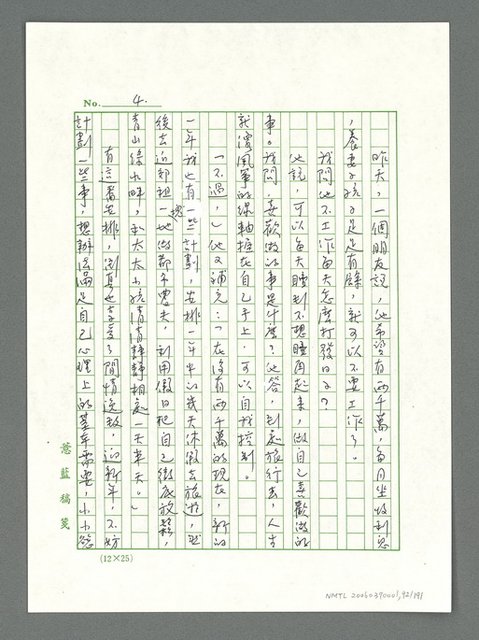 No. 4.
昨天，一個朋友說，他希望有兩千萬，每月坐收利息
，養妻子孩子是足有餘，就可以不要工作了。
我問他不工作每天怎麼打發日子？
他說，可以每天睡到不想睡再起來，做自己喜歡做的
事。我問，喜歡做的事是什麼？他答，到處旅行去，人生
就像風箏的線軸握在自己手上，可以自我控制。
「不過，」他又補充：「在沒有兩千萬的現在，新的
一年我也有一些計劃，安排一年中的幾天休假去旅遊，或
後去近郊租一塊地做都市農夫，利用假日把自己徹底放鬆，
青山綠水畔，和太太小孩清清靜靜相處一天半天。」
有這番安排，倒真也享受了閒情逸致，迎新年，不妨
計劃一些事，想辦法滿足自己心理上的某些需要，小小慾
慧藍稿箋
(12×25)
NMTL 20060390001,92/191